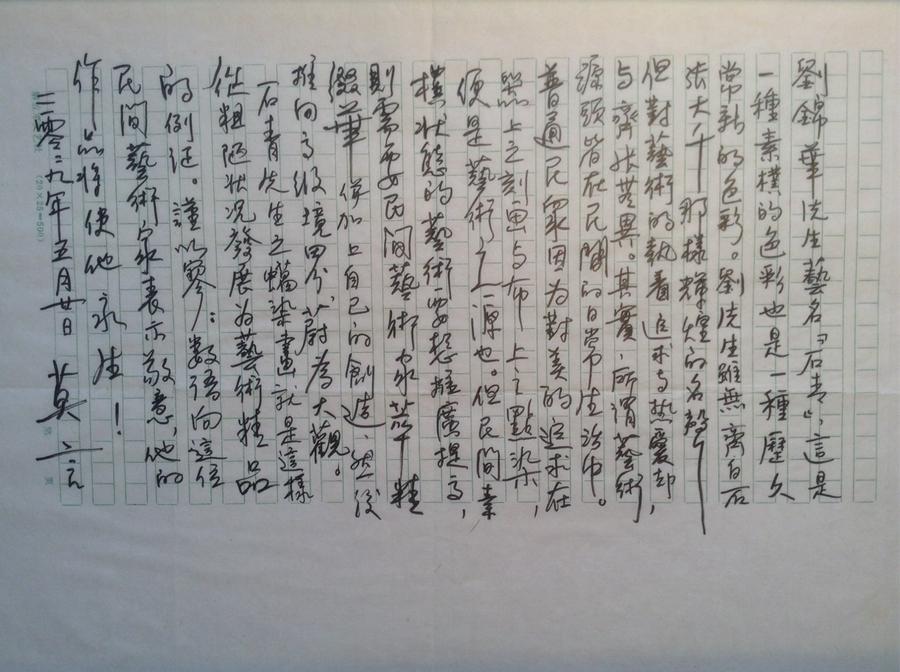 劉錦華先生藝名「石青」,這是
一種素樸的色彩也是一種歷久
常新的色彩。劉先生雖無齊白石
張大千那樣輝煌的名聲
但對藝術的執着追求与热愛却,
与齊張無異。其實,所謂藝術
源頭皆在民間的日常生活中。
普通民眾因為對美的追求在
器上之刻画与布上之點染,
便是藝術之一源也。但民間素
樸状態的藝術要想推廣提高,
則需要民間藝術家萃精
綴華併加上自己的創造、然後
推向高級境界分蔚為大觀。
石青先生之蠟染畫就是這樣
從粗陋状况發展為藝術精品
的例证。謹以寥寥數語向這位
民間藝術家表示敬意,他的
作品將使他永生!
二零二九年五月廿日 莫
(20×25=500)